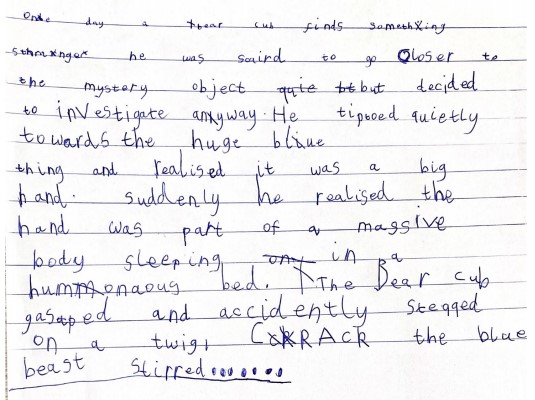 One day a bear cub finds something
sthranger he was scaird to go Closer to
the mystery object but decided
to investigate anyway. He tiptoed quietly
towards the huge blue
thing and realised it was a big
hand. suddenly he realised the
hand was part of a massive
body sleeping in a
humonaoug bed. The Bear cub
gasped and accidently stegged
on a twig, CRRACK the blue
beast stirred.......